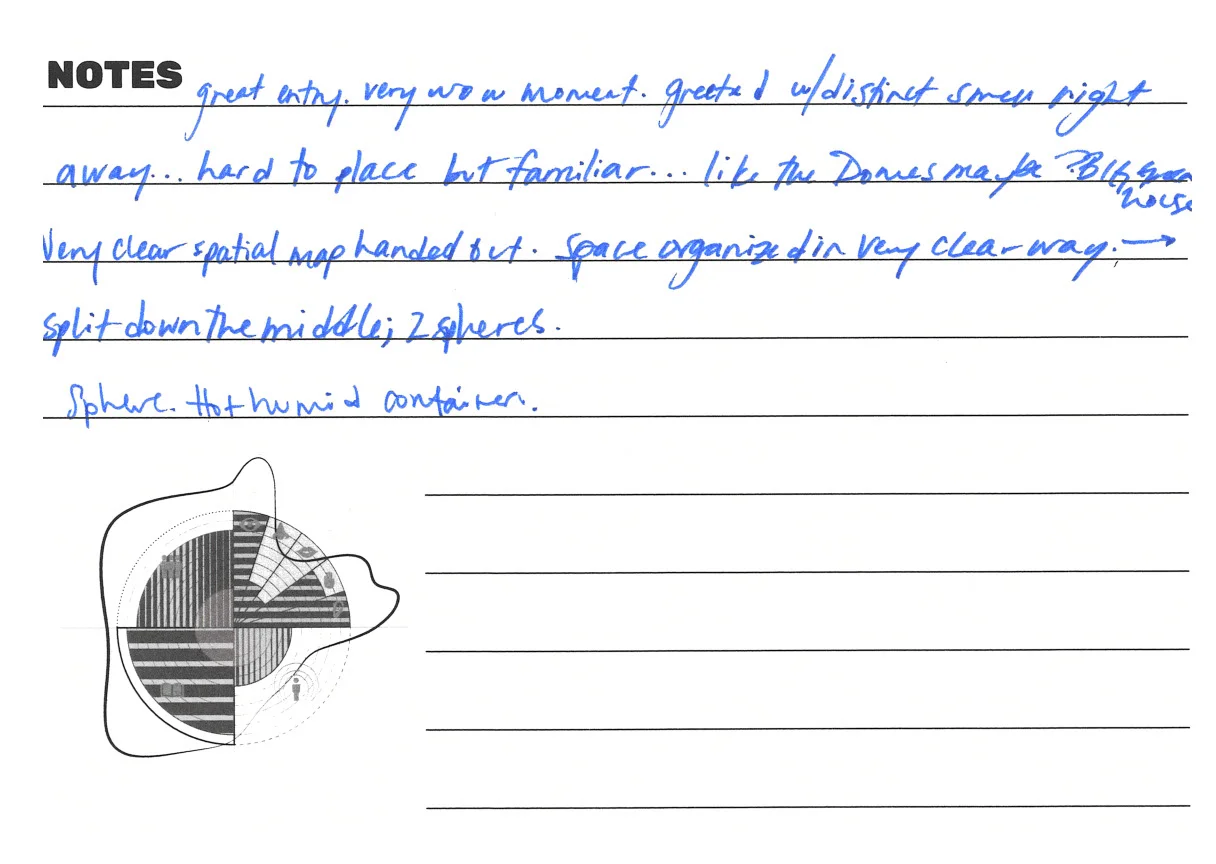 NOTES great entry. very wow moment. greeted w/distinct smell right
away... hard to place but familiar... like the Domes maybe ? Big green
house
Very clear spatial map handed out. Space organized in very clear way. →
split down the middle; 2 spheres.
Sphere. Hot humid container.